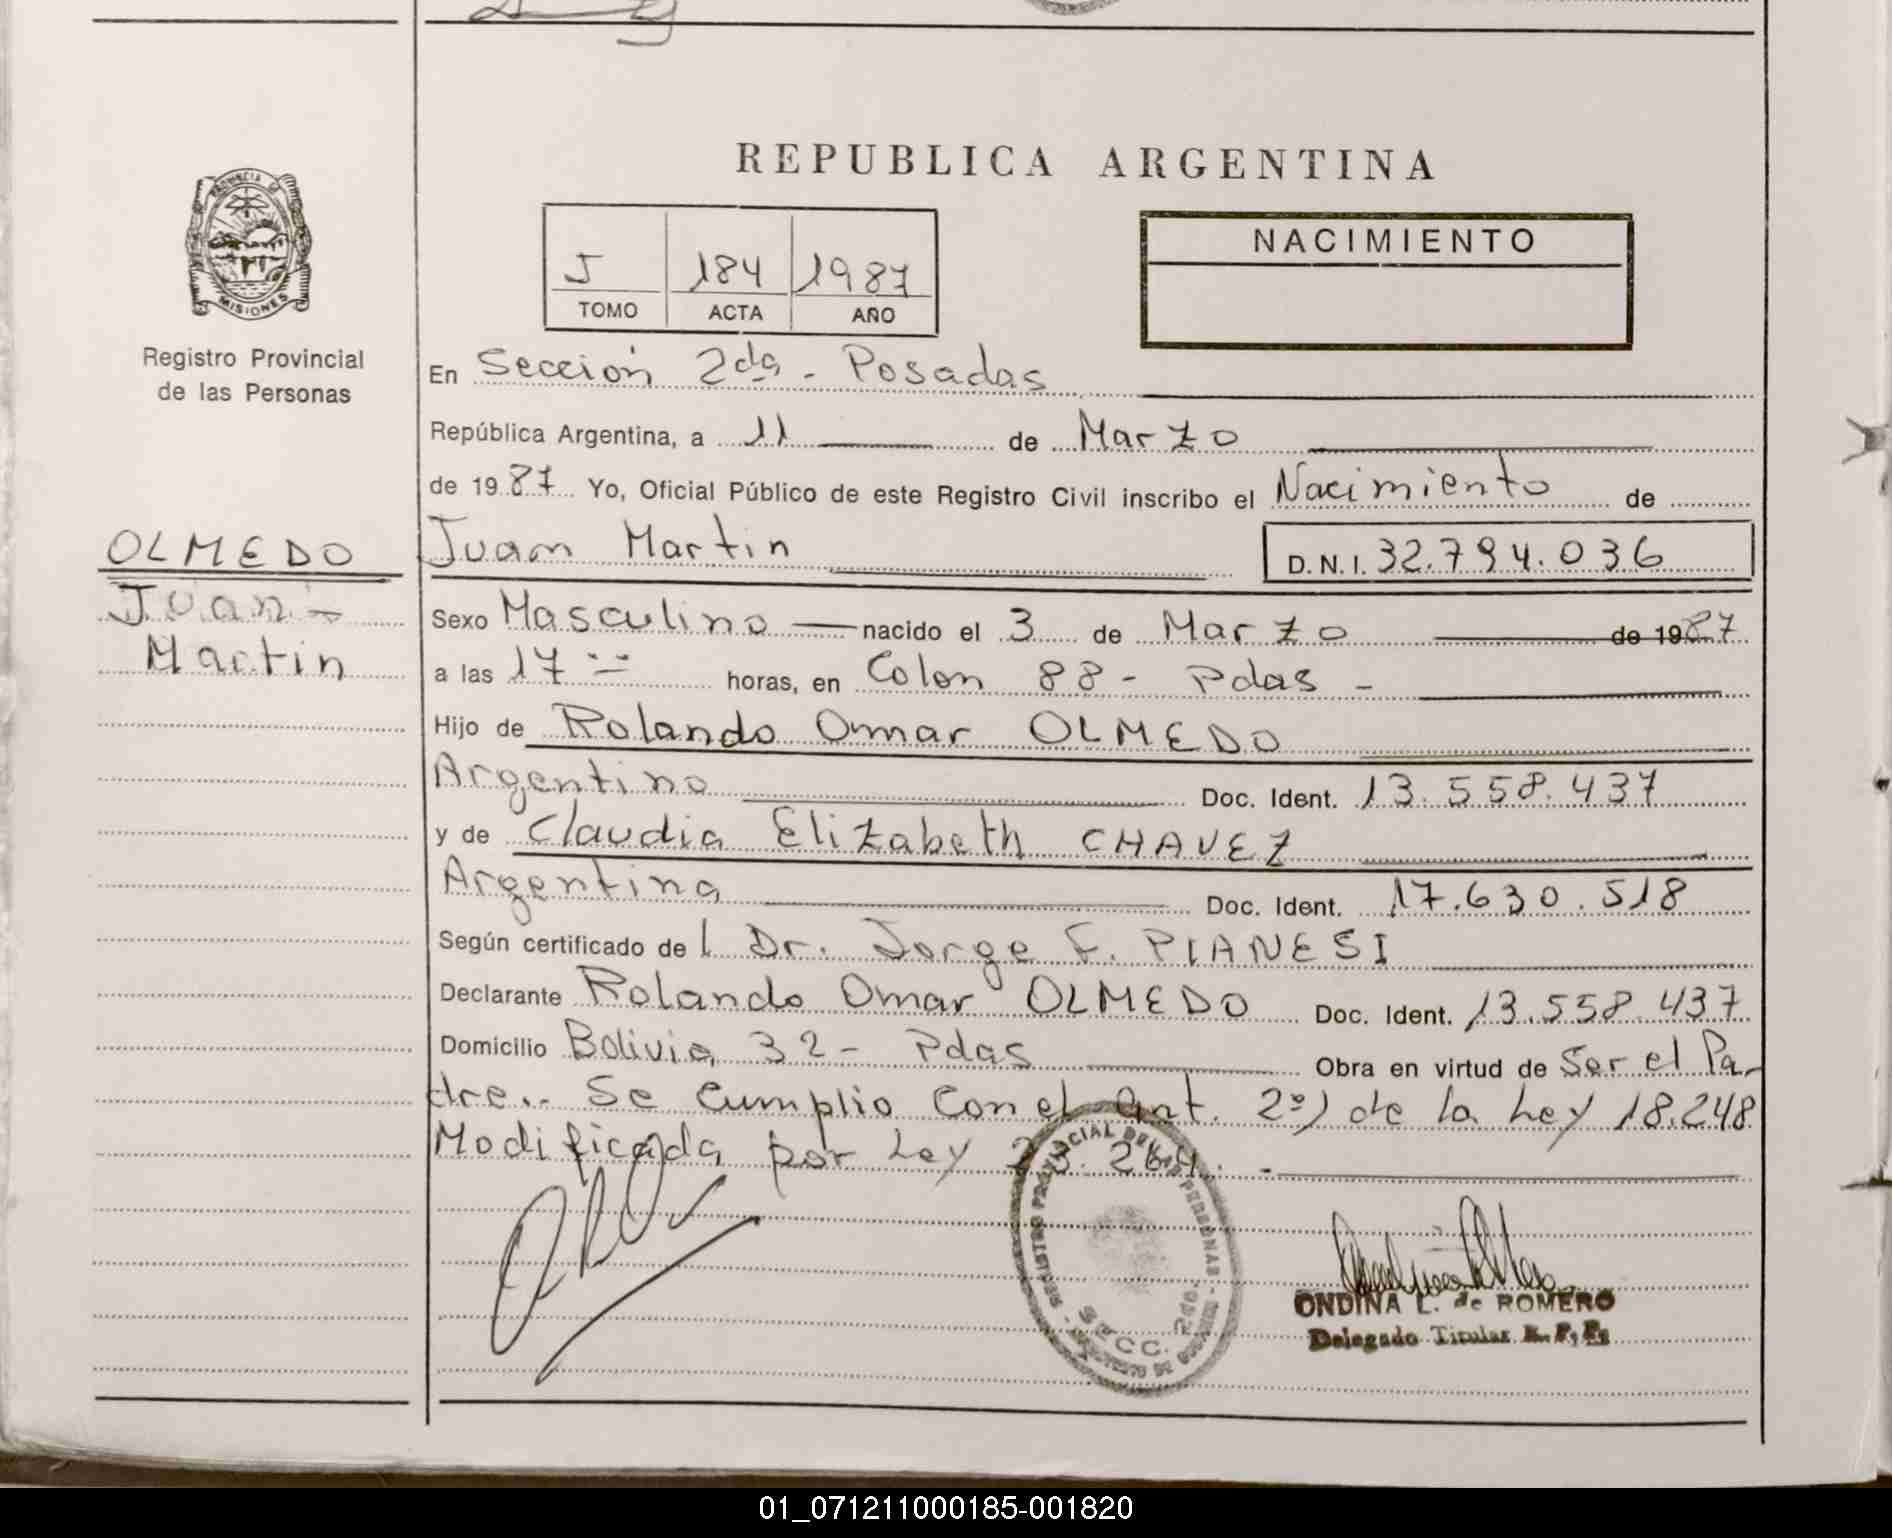 REPUBLICA ARGENTINA
PROVINCIA DE
MISIONES
Registro Provincial
de las Personas
J 184 1987
TOMO ACTA AÑO
NACIMIENTO
En Sección 2da - Posadas
República Argentina, a 11 de Marzo
de 1987 Yo, Oficial Público de este Registro Civil inscribo el Nacimiento de
OLMEDO
Juan
Martin
Juan Martin D.N.I. 32.794.036
Sexo Masculino nacido el 3 de Marzo de 1987
a las 17 horas, en Colon 88 - Pdas -
Hijo de Rolando Omar OLMEDO
Argentino Doc. Ident. 13.558.437
y de Claudia Elizabeth CHAVEZ
Argentina Doc. Ident. 17.630.518
Según certificado de l Dr. Jorge F. PIANESI
Declarante Rolando Omar OLMEDO Doc. Ident. 13.558.437
Domicilio Bolivia 32 - Pdas Obra en virtud de Ser el Pa-
dre.. Se Cumplio con el art. 2º) de la Ley 18.248
Modificada por Ley 23.264. -
REGISTRO PROVINCIAL DE LAS PERSONAS
SECC. 2da.
ONDINA L. de ROMERO
Delegado Titular R. P. P.
01_071211000185-001820